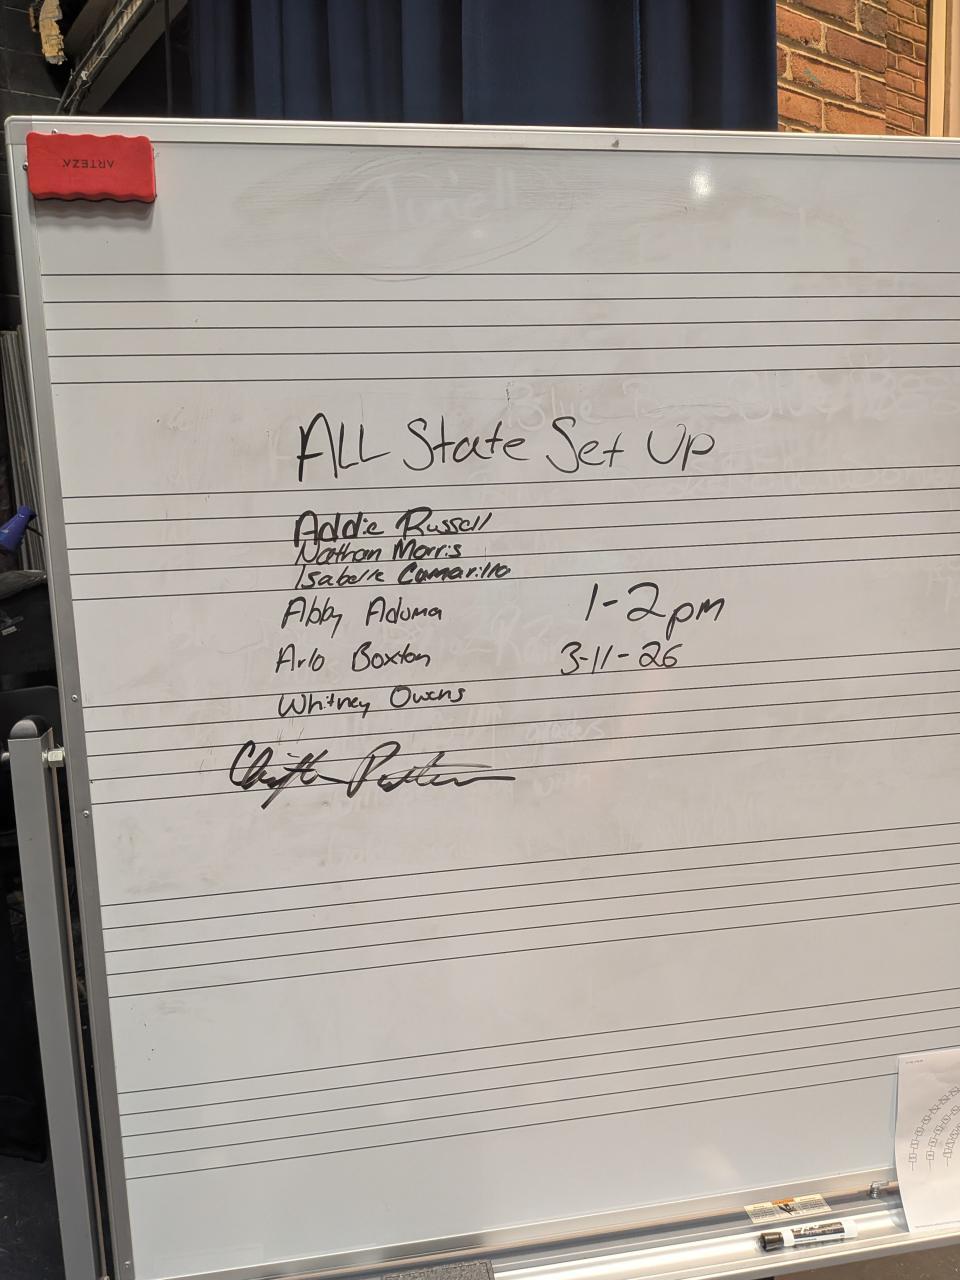 ARTEZA
Tunell
ALL State Set Up
Addie Russell
Nathan Morris
Isabelle Camarillo
Abby Aduma
1-2pm
Arlo Boxton
3-11-26
Whitney Owens